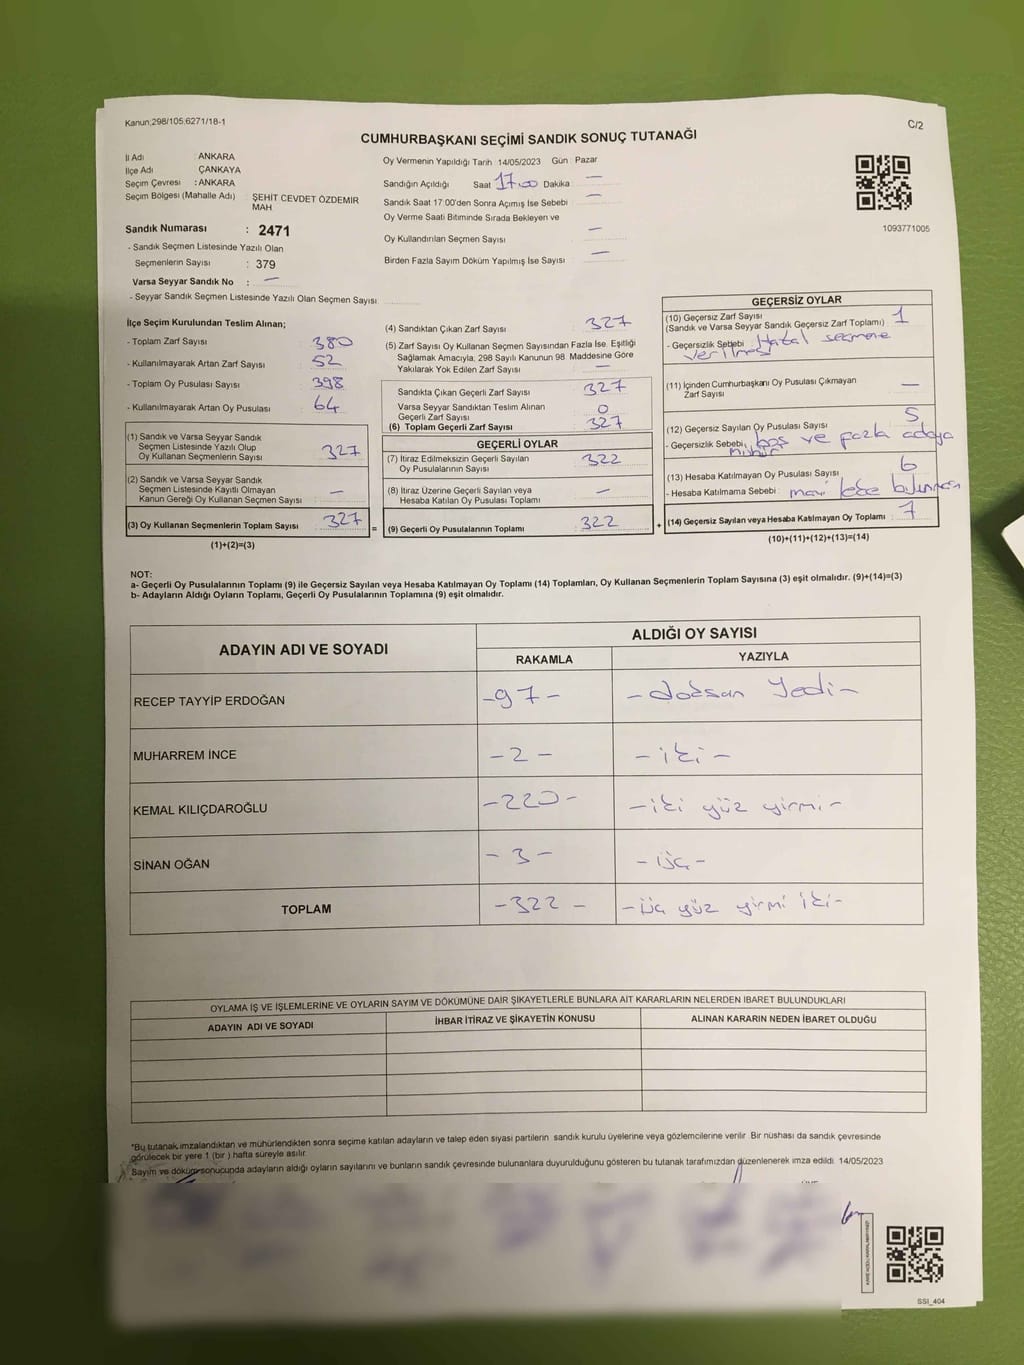 Kanun;298/105;6271/18-1
C/2
CUMHURBAŞKANI SEÇİMİ SANDIK SONUÇ TUTANAĞI
İl Adı : ANKARA
İlçe Adı : ÇANKAYA
Seçim Çevresi : ANKARA
Seçim Bölgesi (Mahalle Adı) : ŞEHİT CEVDET ÖZDEMIR MAH
Sandık Numarası : 2471
- Sandık Seçmen Listesinde Yazılı Olan
Seçmenlerin Sayısı : 379
Varsa Seyyar Sandık No : —
- Seyyar Sandık Seçmen Listesinde Yazılı Olan Seçmen Sayısı
Oy Vermenin Yapıldığı Tarih 14/05/2023 Gün : Pazar
Sandığın Açıldığı Saat 17:00 Dakika —
Sandık Saat 17:00'den Sonra Açımış İse Sebebi —
Oy Verme Saati Bitiminde Sırada Bekleyen ve
Oy Kullandırılan Seçmen Sayısı —
Birden Fazla Sayım Döküm Yapılmış İse Sayısı —
1093771005
İlçe Seçim Kurulundan Teslim Alınan;
- Toplam Zarf Sayısı : 380
- Kullanılmayarak Artan Zarf Sayısı : 52
- Toplam Oy Pusulası Sayısı : 398
- Kullanılmayarak Artan Oy Pusulası : 64
(1) Sandık ve Varsa Seyyar Sandık
Seçmen Listesinde Yazılı Olup
Oy Kullanan Seçmenlerin Sayısı : 327
(2) Sandık ve Varsa Seyyar Sandık
Seçmen Listesinde Kayıtlı Olmayan
Kanun Gereği Oy Kullanan Seçmen Sayısı : —
(3) Oy Kullanan Seçmenlerin Toplam Sayısı : 327 =
(1)+(2)=(3)
(4) Sandıktan Çıkan Zarf Sayısı : 327
(5) Zarf Sayısı Oy Kullanan Seçmen Sayısından Fazla İse, Eşitliği
Sağlamak Amacıyla; 298 Sayılı Kanunun 98. Maddesine Göre
Yakılarak Yok Edilen Zarf Sayısı : —
Sandıkta Çıkan Geçerli Zarf Sayısı : 327
Varsa Seyyar Sandıktan Teslim Alınan
Geçerli Zarf Sayısı : 0
(6) Toplam Geçerli Zarf Sayısı : 327
GEÇERLİ OYLAR
(7) İtiraz Edilmeksizin Geçerli Sayılan
Oy Pusulalarının Sayısı : 322
(8) İtiraz Üzerine Geçerli Sayılan veya
Hesaba Katılan Oy Pusulası Toplamı : —
(9) Geçerli Oy Pusulalarının Toplamı : 322 +
GEÇERSİZ OYLAR
(10) Geçersiz Zarf Sayısı
(Sandık ve Varsa Seyyar Sandık Geçersiz Zarf Toplamı) : 1
- Geçersizlik Sebebi : Hatalı seçmene
verilmesi
(11) İçinden Cumhurbaşkanı Oy Pusulası Çıkmayan
Zarf Sayısı : —
(12) Geçersiz Sayılan Oy Pusulası Sayısı : 5
- Geçersizlik Sebebi : boş ve fazla adaya
mühür
(13) Hesaba Katılmayan Oy Pusulası Sayısı : 6
- Hesaba Katılmama Sebebi : mavi leke bulunması
(14) Geçersiz Sayılan veya Hesaba Katılmayan Oy Toplamı : 7
(10)+(11)+(12)+(13)=(14)
NOT:
a- Geçerli Oy Pusulalarının Toplamı (9) ile Geçersiz Sayılan veya Hesaba Katılmayan Oy Toplamı (14) Toplamları, Oy Kullanan Seçmenlerin Toplam Sayısına (3) eşit olmalıdır. (9)+(14)=(3)
b- Adayların Aldığı Oyların Toplamı, Geçerli Oy Pusulalarının Toplamına (9) eşit olmalıdır.
ADAYIN ADI VE SOYADI
ALDIĞI OY SAYISI
RAKAMLA YAZIYLA
RECEP TAYYİP ERDOĞAN -97- -doksan Yedi-
MUHARREM İNCE -2- -iki-
KEMAL KILIÇDAROĞLU -220- -iki yüz yirmi-
SİNAN OĞAN -3- -üç-
TOPLAM -322- -üç yüz yirmi iki-
OYLAMA İŞ VE İŞLEMLERİNE VE OYLARIN SAYIM VE DÖKÜMÜNE DAİR ŞİKAYETLERLE BUNLARA AİT KARARLARIN NELERDEN İBARET BULUNDUKLARI
ADAYIN ADI VE SOYADI İHBAR İTİRAZ VE ŞİKAYETİN KONUSU ALINAN KARARIN NEDEN İBARET OLDUĞU
*Bu tutanak,imzalandıktan ve mühürlendikten sonra seçime katılan adayların ve talep eden siyasi partilerin sandık kurulu üyelerine veya gözlemcilerine verilir. Bir nüshası da sandık çevresinde
görülecek bir yere 1 (bir ) hafta süreyle asılır.
Sayım ve döküm sonucunda adayların aldığı oyların sayılarını ve bunların sandık çevresinde bulunanlara duyurulduğunu gösteren bu tutanak tarafımızdan düzenlenerek imza edildi. 14/05/2023
SSI_404